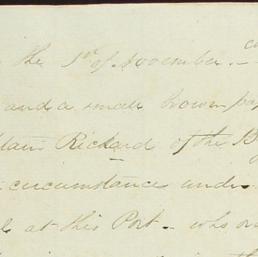 the 1st of November. -
and a small brown pa
tain Rickard of the B
circumstance under
at this Port - who